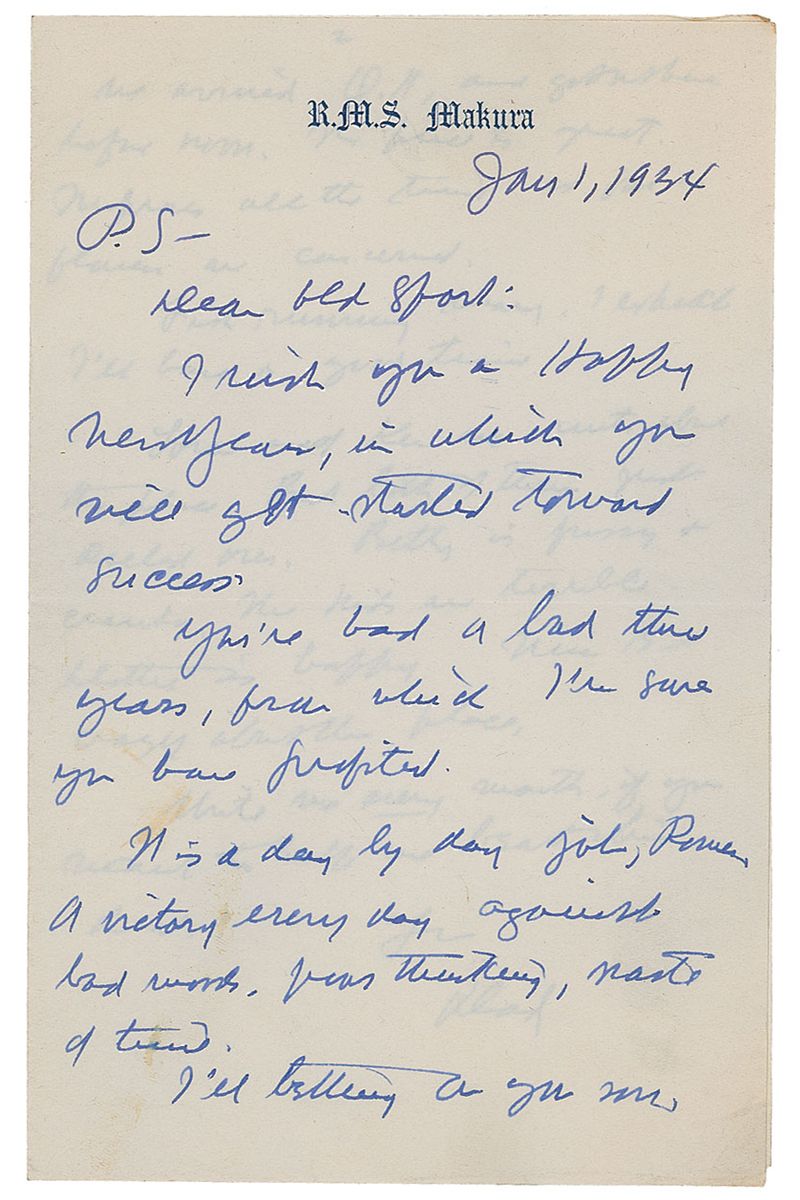 R.M.S. Makura
Jan 1, 1934
P.S—
Dear Old Sport:
I wish you a Happy
New Year, in which you
will get started toward
success.
You've had a bad three
years, from which I'm sure
you have profited.
It is a day by day job, Romer.
A victory every day against
bad moods, poor thinking, waste
of time.
I'll betting on you son,